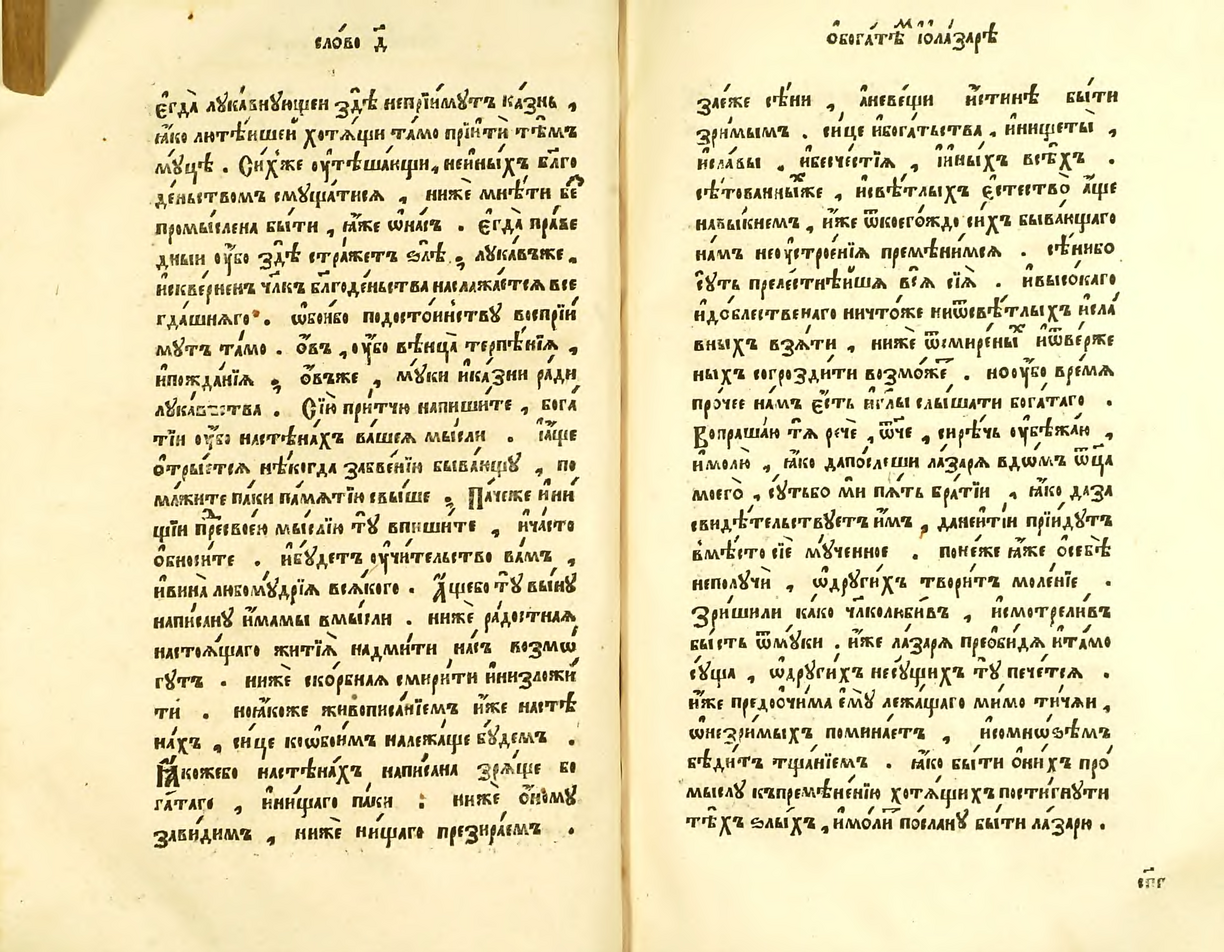 сло́во д҃
є҆гда̀ лꙋка́внꙋющеи здѣ̀ непрїи́мꙋтъ ка́знь ,
ꙗ҆́ко лютѣ́ишей хотѧ́щи та́мо прїитѝ тѣ́мъ
мꙋ́цѣ . Си́хже оу҆тѣша́ющи , неи҆ны́хъ бл҃го
де́ньствомъ смꙋща́тисѧ , нижѐ мнѣ́ти бе
промы́слена бы́ти , ꙗ҆́же ѡ҆на́съ . є҆гда̀ пра́ве
дныи оу҆́бо здѣ̀ стра́жетъ ѕлѣ̀ , лꙋка́въже ,
и҆скве́рненъ чл҃къ бл҃годе́ньства наслажа́етсѧ все
гда́шнѧго . ѡ҆бо́ибо подосто́инствꙋ воспрїи́
мꙋтъ та́мо . о҆́въ , оу҆́бо вѣнца̀ терпѣ́нїѧ ,
и҆пожда́нїѧ , о҆́въже , мꙋ́ки и҆ка́зни ра́ди
лꙋка́вьства . Сїю̀ при́тчю напиши́те , бога́
тїи оу҆́бо настѣна́хъ ва́шеѧ мы́сли . а҆́ще
отры́етсѧ нѣ́когда забве́нїю быва́ющꙋ , по
ма́жите па́ки па́мѧтїю свы́ше . Па́чеже и҆ни́
щїи пресвое́ю мы́слїю тꙋ̀ впиши́те , и҆ча́сто
о҆бноси́те . и҆бꙋ́детъ оу҆чи́тельство ва́мъ ,
и҆вина̀ любомꙋ́дрїѧ всѧ́кого . А҆́щебо тꙋ̀ вы́нꙋ
напи́санꙋ и҆́мамы вмы́сли . нижѐ ра́достнаѧ
настоѧ́щаго житїѧ̀ надми́ти на́съ возмо́
гꙋтъ . нижѐ ско́рбнаѧ смири́ти и҆низложи́
ти . ноꙗ҆́коже живописа́нїемъ и҆́же настѣ
на́хъ , си́це коѡ҆бои́мъ належа́ще бꙋ́демъ .
Ꙗ҆́кожебо настѣна́хъ напи́сана зрѧ́ще бо
га́таго , и҆ни́щаго па́ки : нижѐ о҆́номꙋ
зави́димъ , нижѐ ни́щаго презира́емъ .
о҆бога́тѣмъ и҆ола́зарѣ
занє́же сѣ́ни , а҆неве́щи и҆́стинѣ бы́ти
зри́мымъ . си́це и҆бога́тьства , и҆нищеты̀ ,
и҆сла́вы , и҆бесче́стїѧ , и҆и҆ны́хъ всѣ́хъ .
сѣ́тованныхже , и҆свѣ́тлыхъ є҆стество̀ а҆́ще
навы́кнемъ , и҆́же ѿкоего́ждо си́хъ быва́ющаго
на́мъ неоу҆строе́нїѧ премѣни́мсѧ . сѣ́нибо
сꙋ́ть преле́стнѣишѧ всѧ̀ сїѧ̀ . и҆высо́каго
и҆до́блественаго ничто́же ниѿсвѣ́тлыхъ и҆сла́
вныхъ взѧ́ти , нижѐ ѿсмире́ныхъ и҆ѿве́рже
ныхъ согрозди́ти возмо́же . нооу҆́бо вре́мѧ
про́чее на́мъ є҆́сть и҆гл҃ы слы́шати бога́таго .
Вопраша́ю тѧ̀ речѐ , ѿ́че , си́рѣчь оу҆бѣжа́ю ,
и҆молю̀ , ꙗ҆́ко дапо́слеши ла́зарѧ вдо́мъ ѿц҃а̀
моего̀ , сꙋ́тьбо мѝ пѧ́ть бра́тїи , ꙗ҆́ко даза
свидѣ́тельствꙋетъ и҆́мъ , данеитїи прїи́дꙋтъ
вмѣ́сто сїѐ мꙋ́ченное . поне́же ꙗ҆́же о҆себѣ̀
неполꙋчѝ , ѡ҆дрꙋги́хъ твори́тъ моле́нїе .
Зри́шили ка́ко чл҃колю́бивъ , и҆смотрели́въ
бы́сть ѿмꙋ́ки . и҆́же ла́зарѧ преоби́дѧ и҆та́мо
сꙋ́ща , ѡ҆дрꙋги́хъ несꙋ́щихъ тꙋ̀ пече́тсѧ .
и҆́же предочи́ма є҆мꙋ̀ лежа́щаго ми́мо тича́ѧи ,
ѡ҆незри́мыхъ помина́етъ , и҆сомно́ѕѣмъ
бѣди́тъ тща́нїемъ . ꙗ҆́ко бы́ти о҆ни́хъ про́
мыслꙋ къпремѣне́нїю хотѧ́щихъ пости́гнꙋти
тѣ́хъ ѕлы́хъ , и҆мо́ли по́сланꙋ бы́ти ла́зарю .
сп҃г